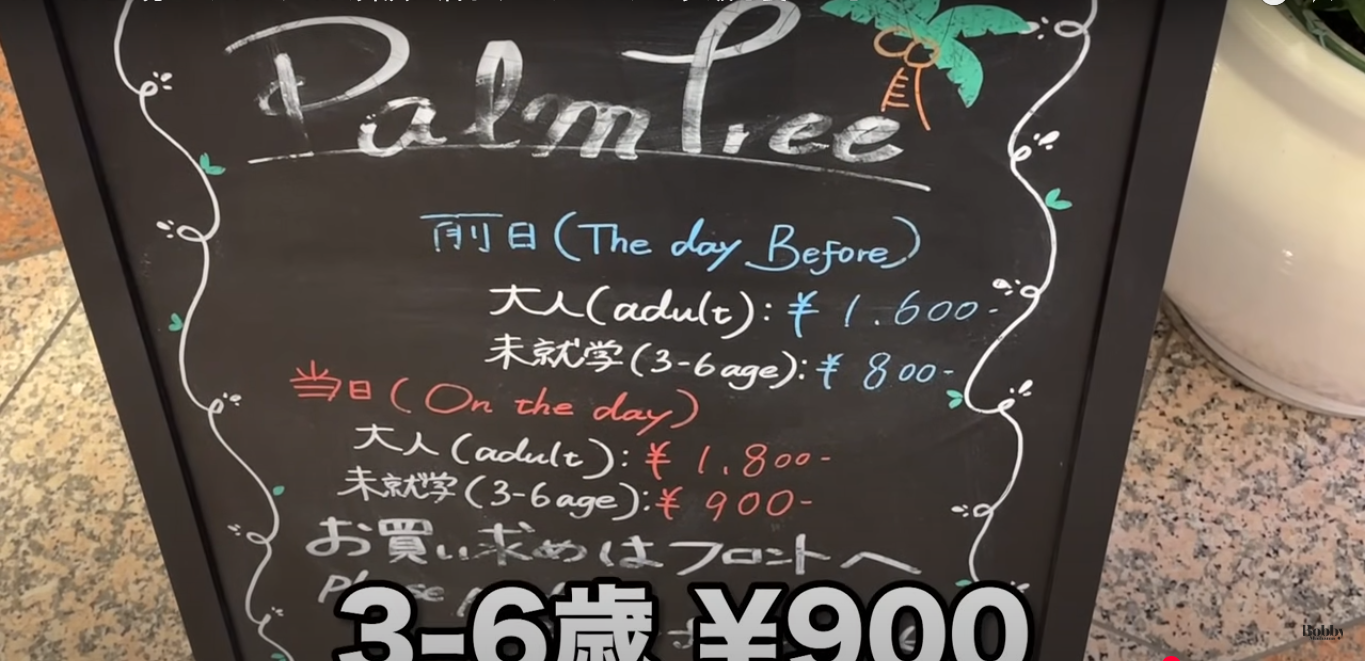 Palm Tree
前日(The day Before)
大人(adult):¥1.600-
未就学(3-6age):¥800-
当日(On the day)
大人(adult):¥1.800-
未就学(3-6age):¥900-
お買い求めはフロントへ
Please
3-6歳 ¥900
Bobby